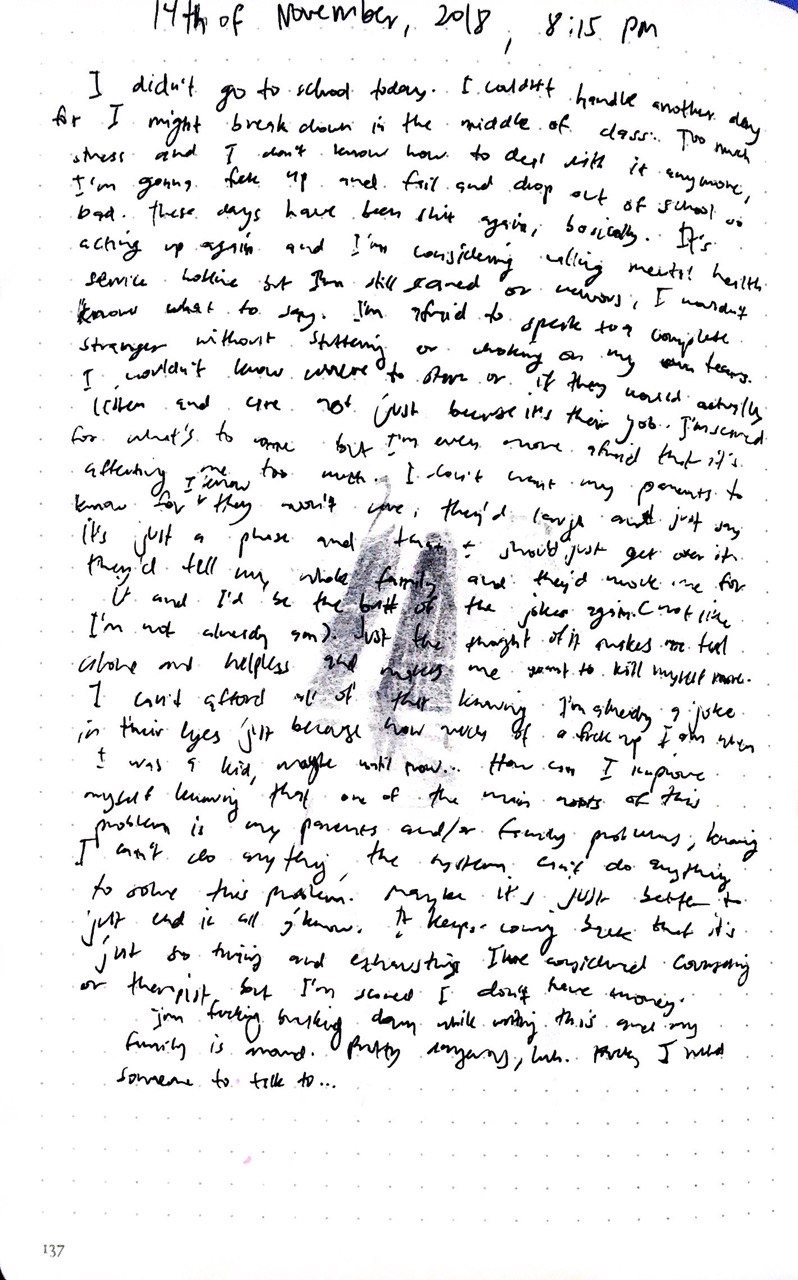 14th of November, 2018, 8:15 pm
I didn't go to school today. I couldn't handle another day
for I might break down in the middle of class. Too much
stress and I don't know how to deal with it anymore,
I'm gonna fuck up and fail and drop out of school so
bad. These days have been shit again, basically. It's
acting up again and I'm considering calling mental health
service hotline but I'm still scared or nervous, I wouldn't
know what to say. I'm afraid to speak to a complete
stranger without stuttering or choking on my own tears.
I wouldn't know where to start or if they would actually
listen and care not just because it's their job. I'm scared
for what's to come but I'm even more afraid that it's
affecting me too much. I don't want my parents to
know for I know they won't care, they'd laugh and just say
it's just a phase and that I should just get over it.
they'd tell my whole family and they'd mock me for
it and I'd be the butt of the jokes again (not like
I'm not already am). Just the thought of it makes me feel
alone and helpless and makes me want to kill myself more.
I can't afford all of that knowing I'm already a joke
in their eyes just because how much of a fuck up I am when
I was a kid, maybe until now... How can I improve
myself knowing that one of the main roots of this
problem is my parents and/or family problems, knowing
I can't do anything, the system can't do anything
to solve this problem. Maybe it's just better to
just end it all y'know. It keeps coming back that it's
just so tiring and exhausting I have considered counseling
or therapist but I'm scared I don't have money.
I'm fucking breaking down while writing this and my
family is around. Pretty, huh. I need
someone to talk to...
137